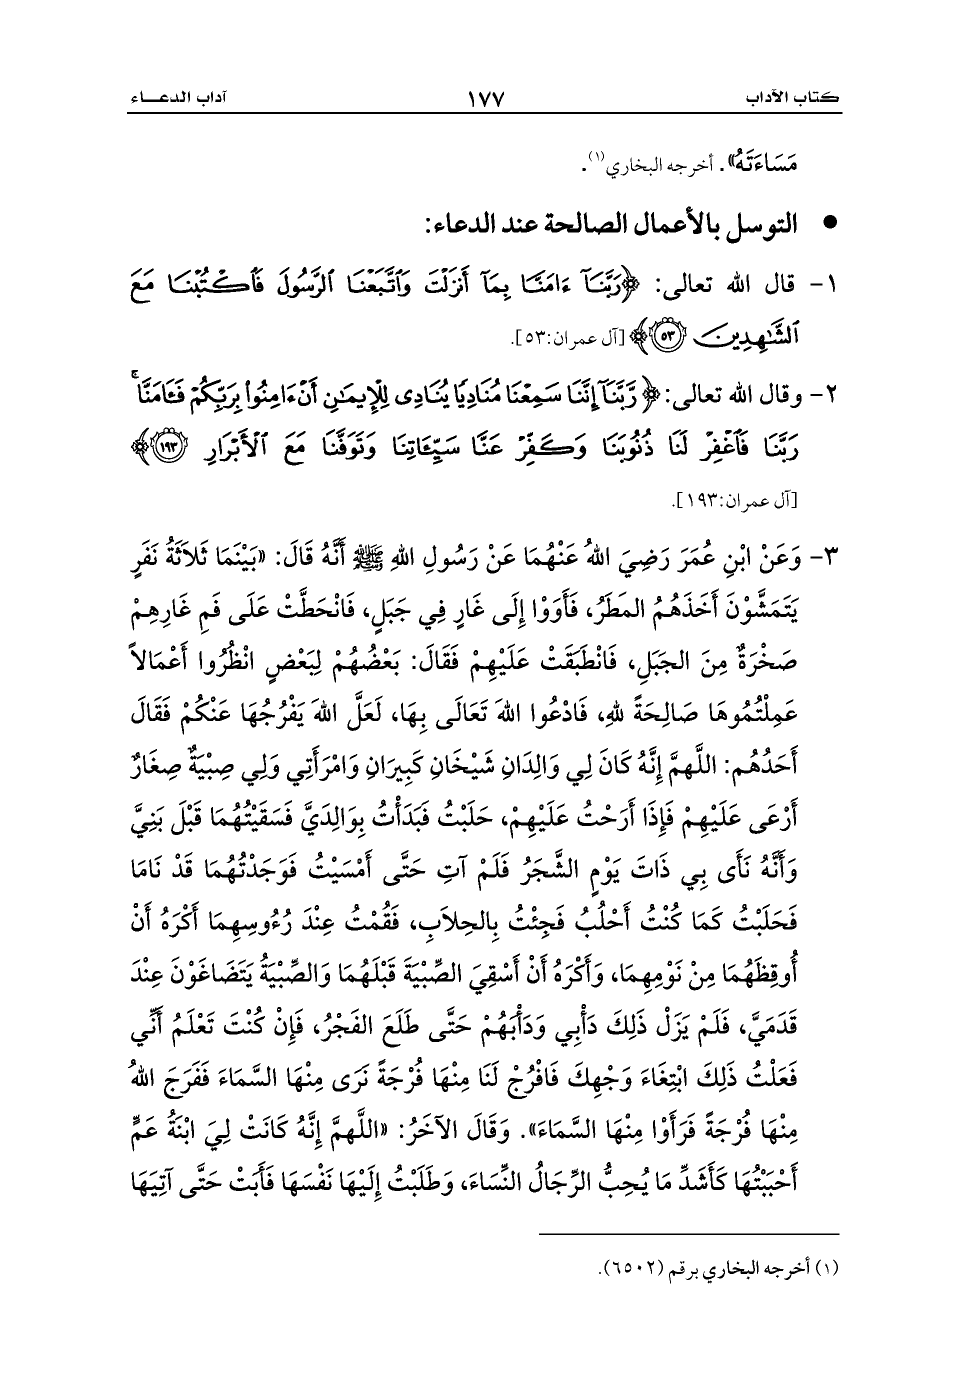 كتاب الآداب ١٧٧ آداب الدعـــاء
مَسَاءَتَهُ». أخرجه البخاري(١).
• التوسل بالأعمال الصالحة عند الدعاء:
١- قال الله تعالى: ﴿رَبَّنَآ ءَامَنَّا بِمَآ أَنزَلْتَ وَٱتَّبَعْنَا ٱلرَّسُولَ فَٱكْتُبْنَا مَعَ
ٱلشَّٰهِدِينَ ٥٣﴾ [آل عمران:٥٣].
٢- وقال الله تعالى: ﴿رَّبَّنَآ إِنَّنَا سَمِعْنَا مُنَادِيًا يُنَادِى لِلْإِيمَٰنِ أَنْ ءَامِنُوا۟ بِرَبِّكُمْ فَـَٔامَنَّا ۚ
رَبَّنَا فَٱغْفِرْ لَنَا ذُنُوبَنَا وَكَفِّرْ عَنَّا سَيِّـَٔاتِنَا وَتَوَفَّنَا مَعَ ٱلْأَبْرَارِ ١٩٣﴾
[آل عمران:١٩٣].
٣- وَعَنْ ابْنِ عُمَرَ رَضِيَ اللهُ عَنْهُمَا عَنْ رَسُولِ اللهِ ﷺ أَنَّهُ قَالَ: «بَيْنَمَا ثَلاَثَةُ نَفَرٍ
يَتَمَشَّوْنَ أَخَذَهُمُ المَطَرُ، فَأَوَوْا إِلَى غَارٍ فِي جَبَلٍ، فَانْحَطَّتْ عَلَى فَمِ غَارِهِمْ
صَخْرَةٌ مِنَ الجَبَلِ، فَانْطَبَقَتْ عَلَيْهِمْ فَقَالَ: بَعْضُهُمْ لِبَعْضٍ انْظُرُوا أَعْمَالاً
عَمِلْتُمُوهَا صَالِحَةً للهِ، فَادْعُوا اللهَ تَعَالَى بِهَا، لَعَلَّ اللهَ يَفْرُجُهَا عَنْكُمْ فَقَالَ
أَحَدُهُم: اللَّهمَّ إِنَّهُ كَانَ لِي وَالِدَانِ شَيْخَانِ كَبِيرَانِ وَامْرَأَتِي وَلِي صِبْيَةٌ صِغَارٌ
أَرْعَى عَلَيْهِمْ فَإِذَا أَرَحْتُ عَلَيْهِمْ، حَلَبْتُ فَبَدَأْتُ بِوَالِدَيَّ فَسَقَيْتُهُمَا قَبْلَ بَنِيَّ
وَأَنَّهُ نَأَى بِي ذَاتَ يَوْمٍ الشَّجَرُ فَلَمْ آتِ حَتَّى أَمْسَيْتُ فَوَجَدْتُهُمَا قَدْ نَامَا
فَحَلَبْتُ كَمَا كُنْتُ أَحْلُبُ فَجِئْتُ بِالحِلاَبِ، فَقُمْتُ عِنْدَ رُءُوسِهِمَا أَكْرَهُ أَنْ
أُوقِظَهُمَا مِنْ نَوْمِهِمَا، وَأَكْرَهُ أَنْ أَسْقِيَ الصِّبْيَةَ قَبْلَهُمَا وَالصِّبْيَةُ يَتَضَاغَوْنَ عِنْدَ
قَدَمَيَّ، فَلَمْ يَزَلْ ذَلِكَ دَأْبِي وَدَأْبَهُمْ حَتَّى طَلَعَ الفَجْرُ، فَإِنْ كُنْتَ تَعْلَمُ أَنِّي
فَعَلْتُ ذَلِكَ ابْتِغَاءَ وَجْهِكَ فَافْرُجْ لَنَا مِنْهَا فُرْجَةً نَرَى مِنْهَا السَّمَاءَ فَفَرَجَ اللهُ
مِنْهَا فُرْجَةً فَرَأَوْا مِنْهَا السَّمَاءَ». وَقَالَ الآخَرُ: «اللَّهمَّ إِنَّهُ كَانَتْ لِيَ ابْنَةُ عَمٍّ
أَحْبَبْتُهَا كَأَشَدِّ مَا يُحِبُّ الرِّجَالُ النِّسَاءَ، وَطَلَبْتُ إِلَيْهَا نَفْسَهَا فَأَبَتْ حَتَّى آتِيَهَا
(١) أخرجه البخاري برقم (٦٥٠٢).